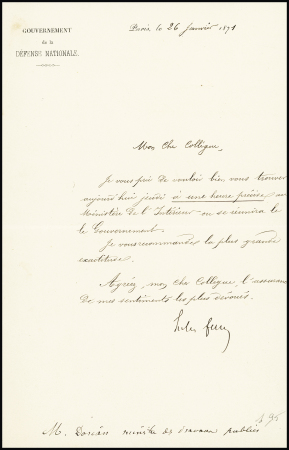 GOUVERNEMENT
de la
DÉFENSE NATIONALE.
Paris, le 26 Janvier 1871
Mon Cher Collègue,
Je vous prie de vouloir bien vous trouver
aujourd'hui jeudi à une heure précise au
Ministère de l'Intérieur où se réunira
le Gouvernement.
Je vous recommande la plus grande
exactitude.
Agréez, mon Cher Collègue, l'assurance
de mes sentiments les plus dévoués.
Jules Favre
M. Dorian ministre des travaux publics